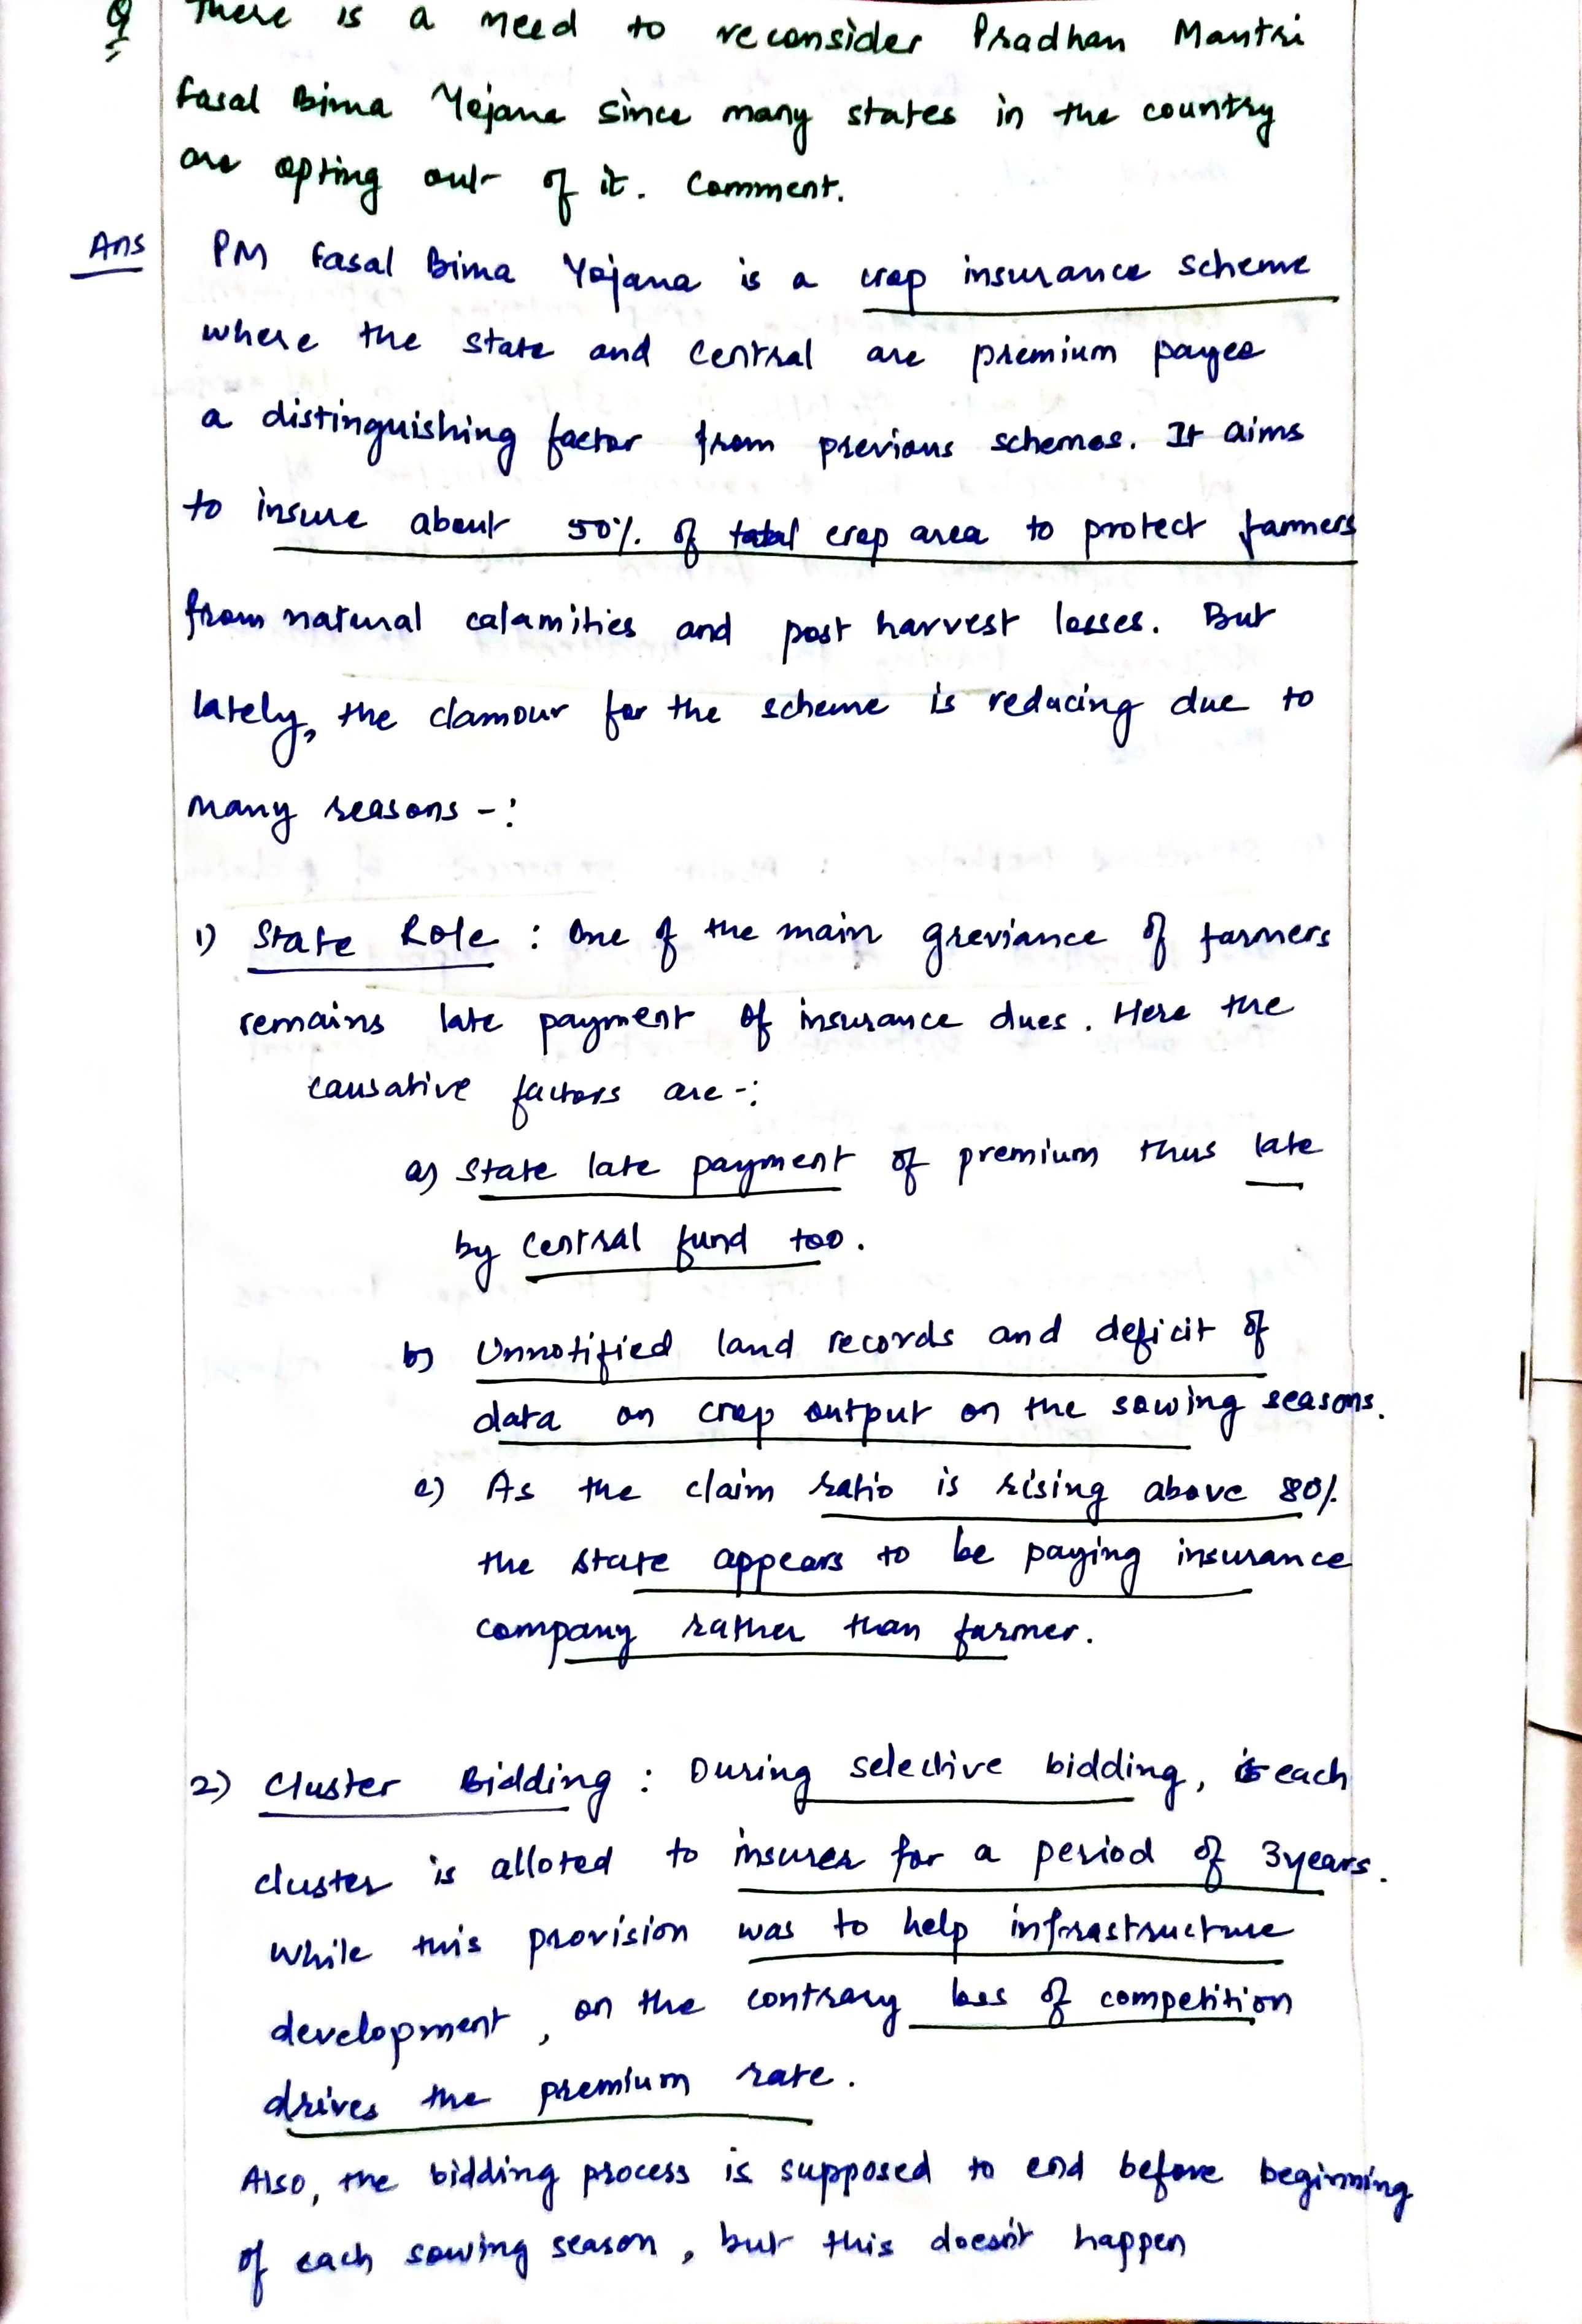 Q There is a need to reconsider Pradhan Mantri
Fasal Bima Yojana since many states in the country
are opting out of it. Comment.
Ans PM Fasal Bima Yojana is a crop insurance scheme
where the state and central are premium payee
a distinguishing factor from previous schemes. It aims
to insure about 50% of total crop area to protect farmers
from natural calamities and post harvest losses. But
lately, the clamour for the scheme is reducing due to
many reasons -:
1) State Role : One of the main greviance of farmers
remains late payment of insurance dues. Here the
causative factors are -:
a) State late payment of premium thus late
by central fund too.
b) Unnotified land records and deficit of
data on crop output on the sowing seasons.
c) As the claim ratio is rising above 80%
the state appears to be paying insurance
company rather than farmer.
2) Cluster Bidding : During selective bidding, each
cluster is alloted to insurer for a period of 3 years.
While this provision was to help infrastructure
development, on the contrary loss of competition
drives the premium rate.
Also, the bidding process is supposed to end before beginning
of each sowing season, but this doesn't happen